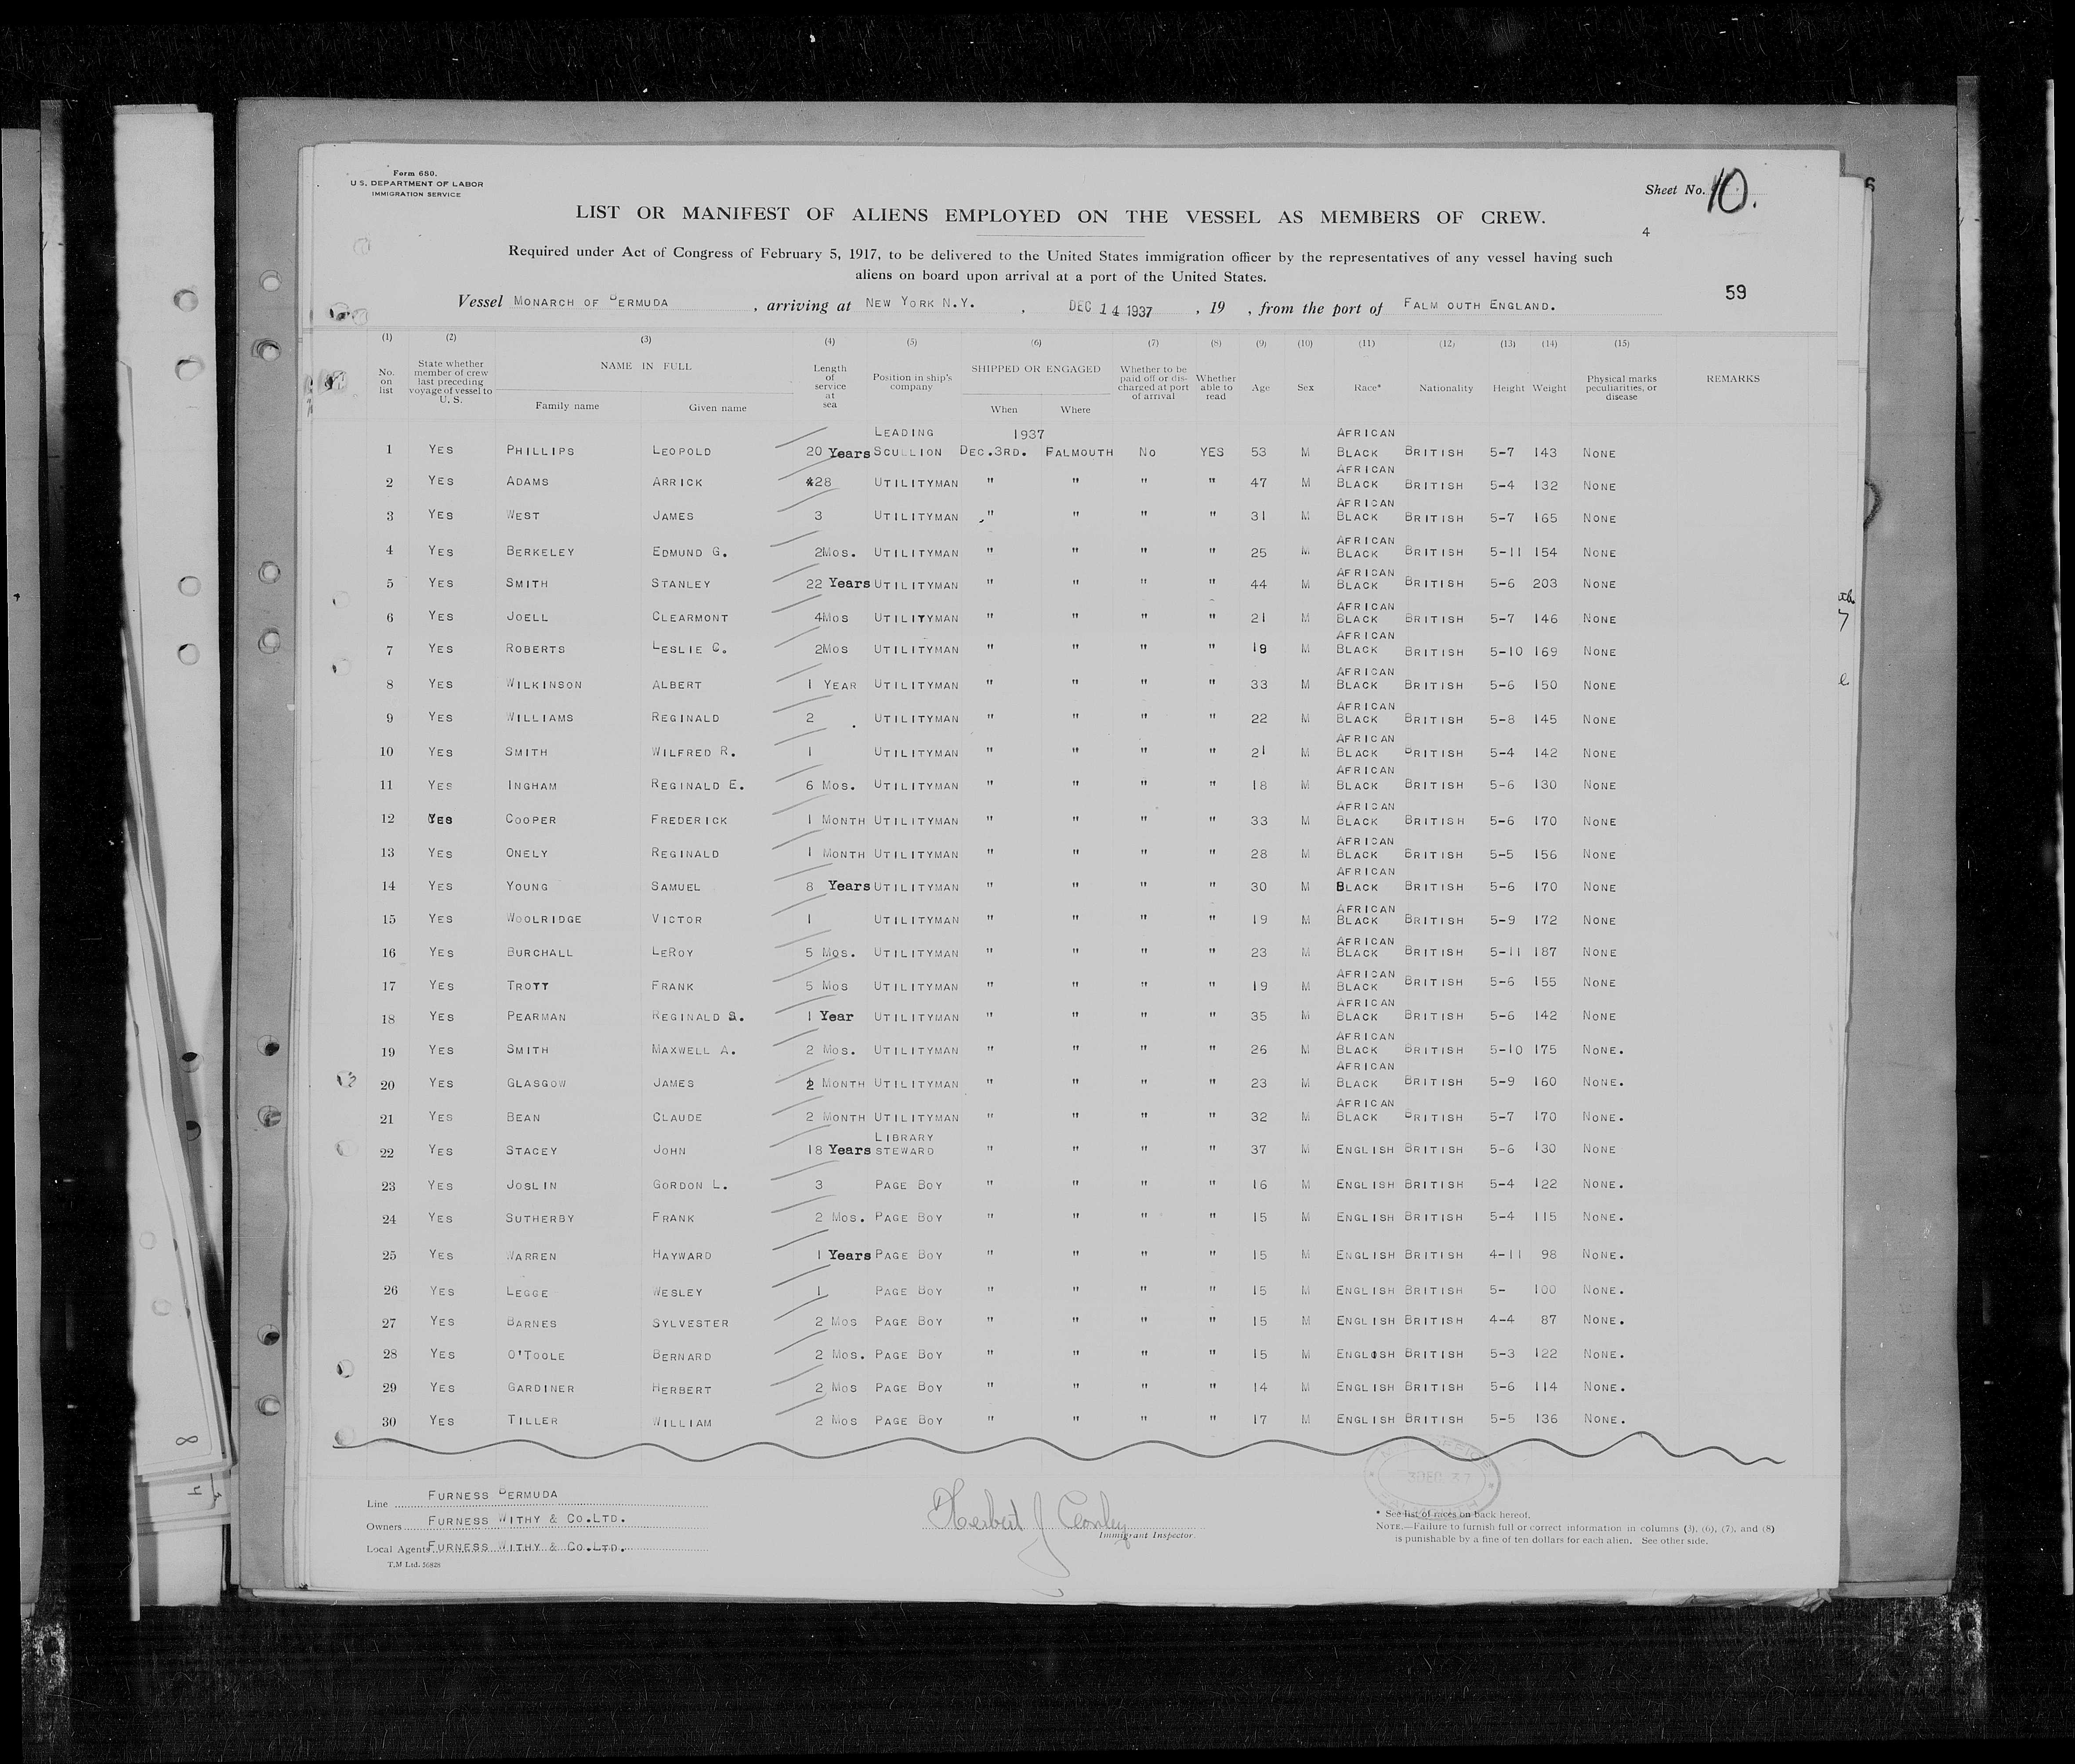 Form 680.
U.S. DEPARTMENT OF LABOR
IMMIGRATION SERVICE
Sheet No. 10.
LIST OR MANIFEST OF ALIENS EMPLOYED ON THE VESSEL AS MEMBERS OF CREW.
4
Required under Act of Congress of February 5, 1917, to be delivered to the United States immigration officer by the representatives of any vessel having such
aliens on board upon arrival at a port of the United States.
59
Vessel MONARCH OF BERMUDA , arriving at NEW YORK N.Y. , DEC 14 1937 , 19 , from the port of FALMOUTH ENGLAND.
(1) (2) (3) (4) (5) (6) (7) (8) (9) (10) (11) (12) (13) (14) (15)
No. on list | State whether member of crew last preceding voyage of vessel to U. S. | NAME IN FULL Family name Given name | Length of service at sea | Position in ship's company | SHIPPED OR ENGAGED When Where | Whether to be paid off or discharged at port of arrival | Whether able to read | Age | Sex | Race* | Nationality | Height | Weight | Physical marks peculiarities, or disease | REMARKS
LEADING 1937 AFRICAN
1 YES PHILLIPS LEOPOLD 20 Years SCULLION DEC.3RD. FALMOUTH NO YES 53 M BLACK BRITISH 5-7 143 NONE
AFRICAN
2 YES ADAMS ARRICK 28 UTILITYMAN " " " " 47 M BLACK BRITISH 5-4 132 NONE
AFRICAN
3 YES WEST JAMES 3 UTILITYMAN " " " " 31 M BLACK BRITISH 5-7 165 NONE
AFRICAN
4 YES BERKELEY EDMUND G. 2MOS. UTILITYMAN " " " " 25 M BLACK BRITISH 5-11 154 NONE
AFRICAN
5 YES SMITH STANLEY 22 Years UTILITYMAN " " " " 44 M BLACK BRITISH 5-6 203 NONE
AFRICAN
6 YES JOELL CLEARMONT 4MOS UTILITYMAN " " " " 21 M BLACK BRITISH 5-7 146 NONE
AFRICAN
7 YES ROBERTS LESLIE C. 2MOS UTILITYMAN " " " " 19 M BLACK BRITISH 5-10 169 NONE
AFRICAN
8 YES WILKINSON ALBERT 1 YEAR UTILITYMAN " " " " 33 M BLACK BRITISH 5-6 150 NONE
AFRICAN
9 YES WILLIAMS REGINALD 2 . UTILITYMAN " " " " 22 M BLACK BRITISH 5-8 145 NONE
AFRICAN
10 YES SMITH WILFRED R. 1 UTILITYMAN " " " " 21 M BLACK BRITISH 5-4 142 NONE
AFRICAN
11 YES INGHAM REGINALD E. 6 MOS. UTILITYMAN " " " " 18 M BLACK BRITISH 5-6 130 NONE
AFRICAN
12 YES COOPER FREDERICK 1 MONTH UTILITYMAN " " " " 33 M BLACK BRITISH 5-6 170 NONE
AFRICAN
13 YES ONELY REGINALD 1 MONTH UTILITYMAN " " " " 28 M BLACK BRITISH 5-5 156 NONE
AFRICAN
14 YES YOUNG SAMUEL 8 Years UTILITYMAN " " " " 30 M BLACK BRITISH 5-6 170 NONE
AFRICAN
15 YES WOOLRIDGE VICTOR 1 UTILITYMAN " " " " 19 M BLACK BRITISH 5-9 172 NONE
AFRICAN
16 YES BURCHALL LEROY 5 MOS. UTILITYMAN " " " " 23 M BLACK BRITISH 5-11 187 NONE
AFRICAN
17 YES TROTT FRANK 5 MOS UTILITYMAN " " " " 19 M BLACK BRITISH 5-6 155 NONE
AFRICAN
18 YES PEARMAN REGINALD S. 1 Year UTILITYMAN " " " " 35 M BLACK BRITISH 5-6 142 NONE
AFRICAN
19 YES SMITH MAXWELL A. 2 MOS. UTILITYMAN " " " " 26 M BLACK BRITISH 5-10 175 NONE.
AFRICAN
20 YES GLASGOW JAMES 2 MONTH UTILITYMAN " " " " 23 M BLACK BRITISH 5-9 160 NONE.
AFRICAN
21 YES BEAN CLAUDE 2 MONTH UTILITYMAN " " " " 32 M BLACK BRITISH 5-7 170 NONE.
LIBRARY
22 YES STACEY JOHN 18 Years STEWARD " " " " 37 M ENGLISH BRITISH 5-6 130 NONE
23 YES JOSLIN GORDON L. 3 PAGE BOY " " " " 16 M ENGLISH BRITISH 5-4 122 NONE.
24 YES SUTHERBY FRANK 2 MOS. PAGE BOY " " " " 15 M ENGLISH BRITISH 5-4 115 NONE.
25 YES WARREN HAYWARD 1 Years PAGE BOY " " " " 15 M ENGLISH BRITISH 4-11 98 NONE.
26 YES LEGGE WESLEY 1 PAGE BOY " " " " 15 M ENGLISH BRITISH 5- 100 NONE.
27 YES BARNES SYLVESTER 2 MOS PAGE BOY " " " " 15 M ENGLISH BRITISH 4-4 87 NONE.
28 YES O'TOOLE BERNARD 2 MOS. PAGE BOY " " " " 15 M ENGLISH BRITISH 5-3 122 NONE.
29 YES GARDINER HERBERT 2 MOS PAGE BOY " " " " 14 M ENGLISH BRITISH 5-6 114 NONE.
30 YES TILLER WILLIAM 2 MOS PAGE BOY " " " " 17 M ENGLISH BRITISH 5-5 136 NONE.
3 DEC. 37
Line FURNESS BERMUDA
Owners FURNESS WITHY & CO.LTD.
Local Agents FURNESS WITHY & CO.LTD.
T.M Ltd. 56828
Herbert J
Immigrant Inspector.
* See list of races on back hereof.
NOTE.—Failure to furnish full or correct information in columns (3), (6), (7), and (8)
is punishable by a fine of ten dollars for each alien. See other side.